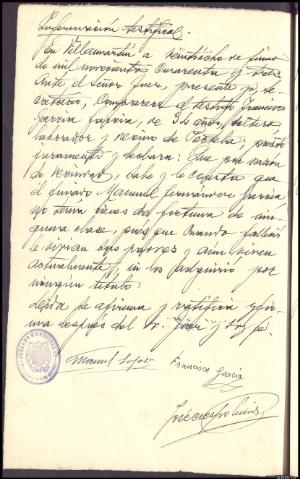 Información testifical.
En Villamartín a veintiocho de Junio
de mil novecientos cuarenta y tres
Ante el Señor Juez, presente yo, Se-
cretario, comparece el testigo Francisco
García García, de 34 años, soltero
labrador y vecino de ; prestó
juramento y declara: Que por razón
de vecindad, sabe y le consta que
el finado Manuel Fernández García,
no tenía bienes de fortuna de nin-
guna clase, pues que cuando falleció
le vivían sus padres y aún viven
actualmente, ni los adquirió por
ningún título:
Leída se afirma y ratifica y fir-
ma después del Sr. Juez y doy fé.
Manuel López
Francisco García
José